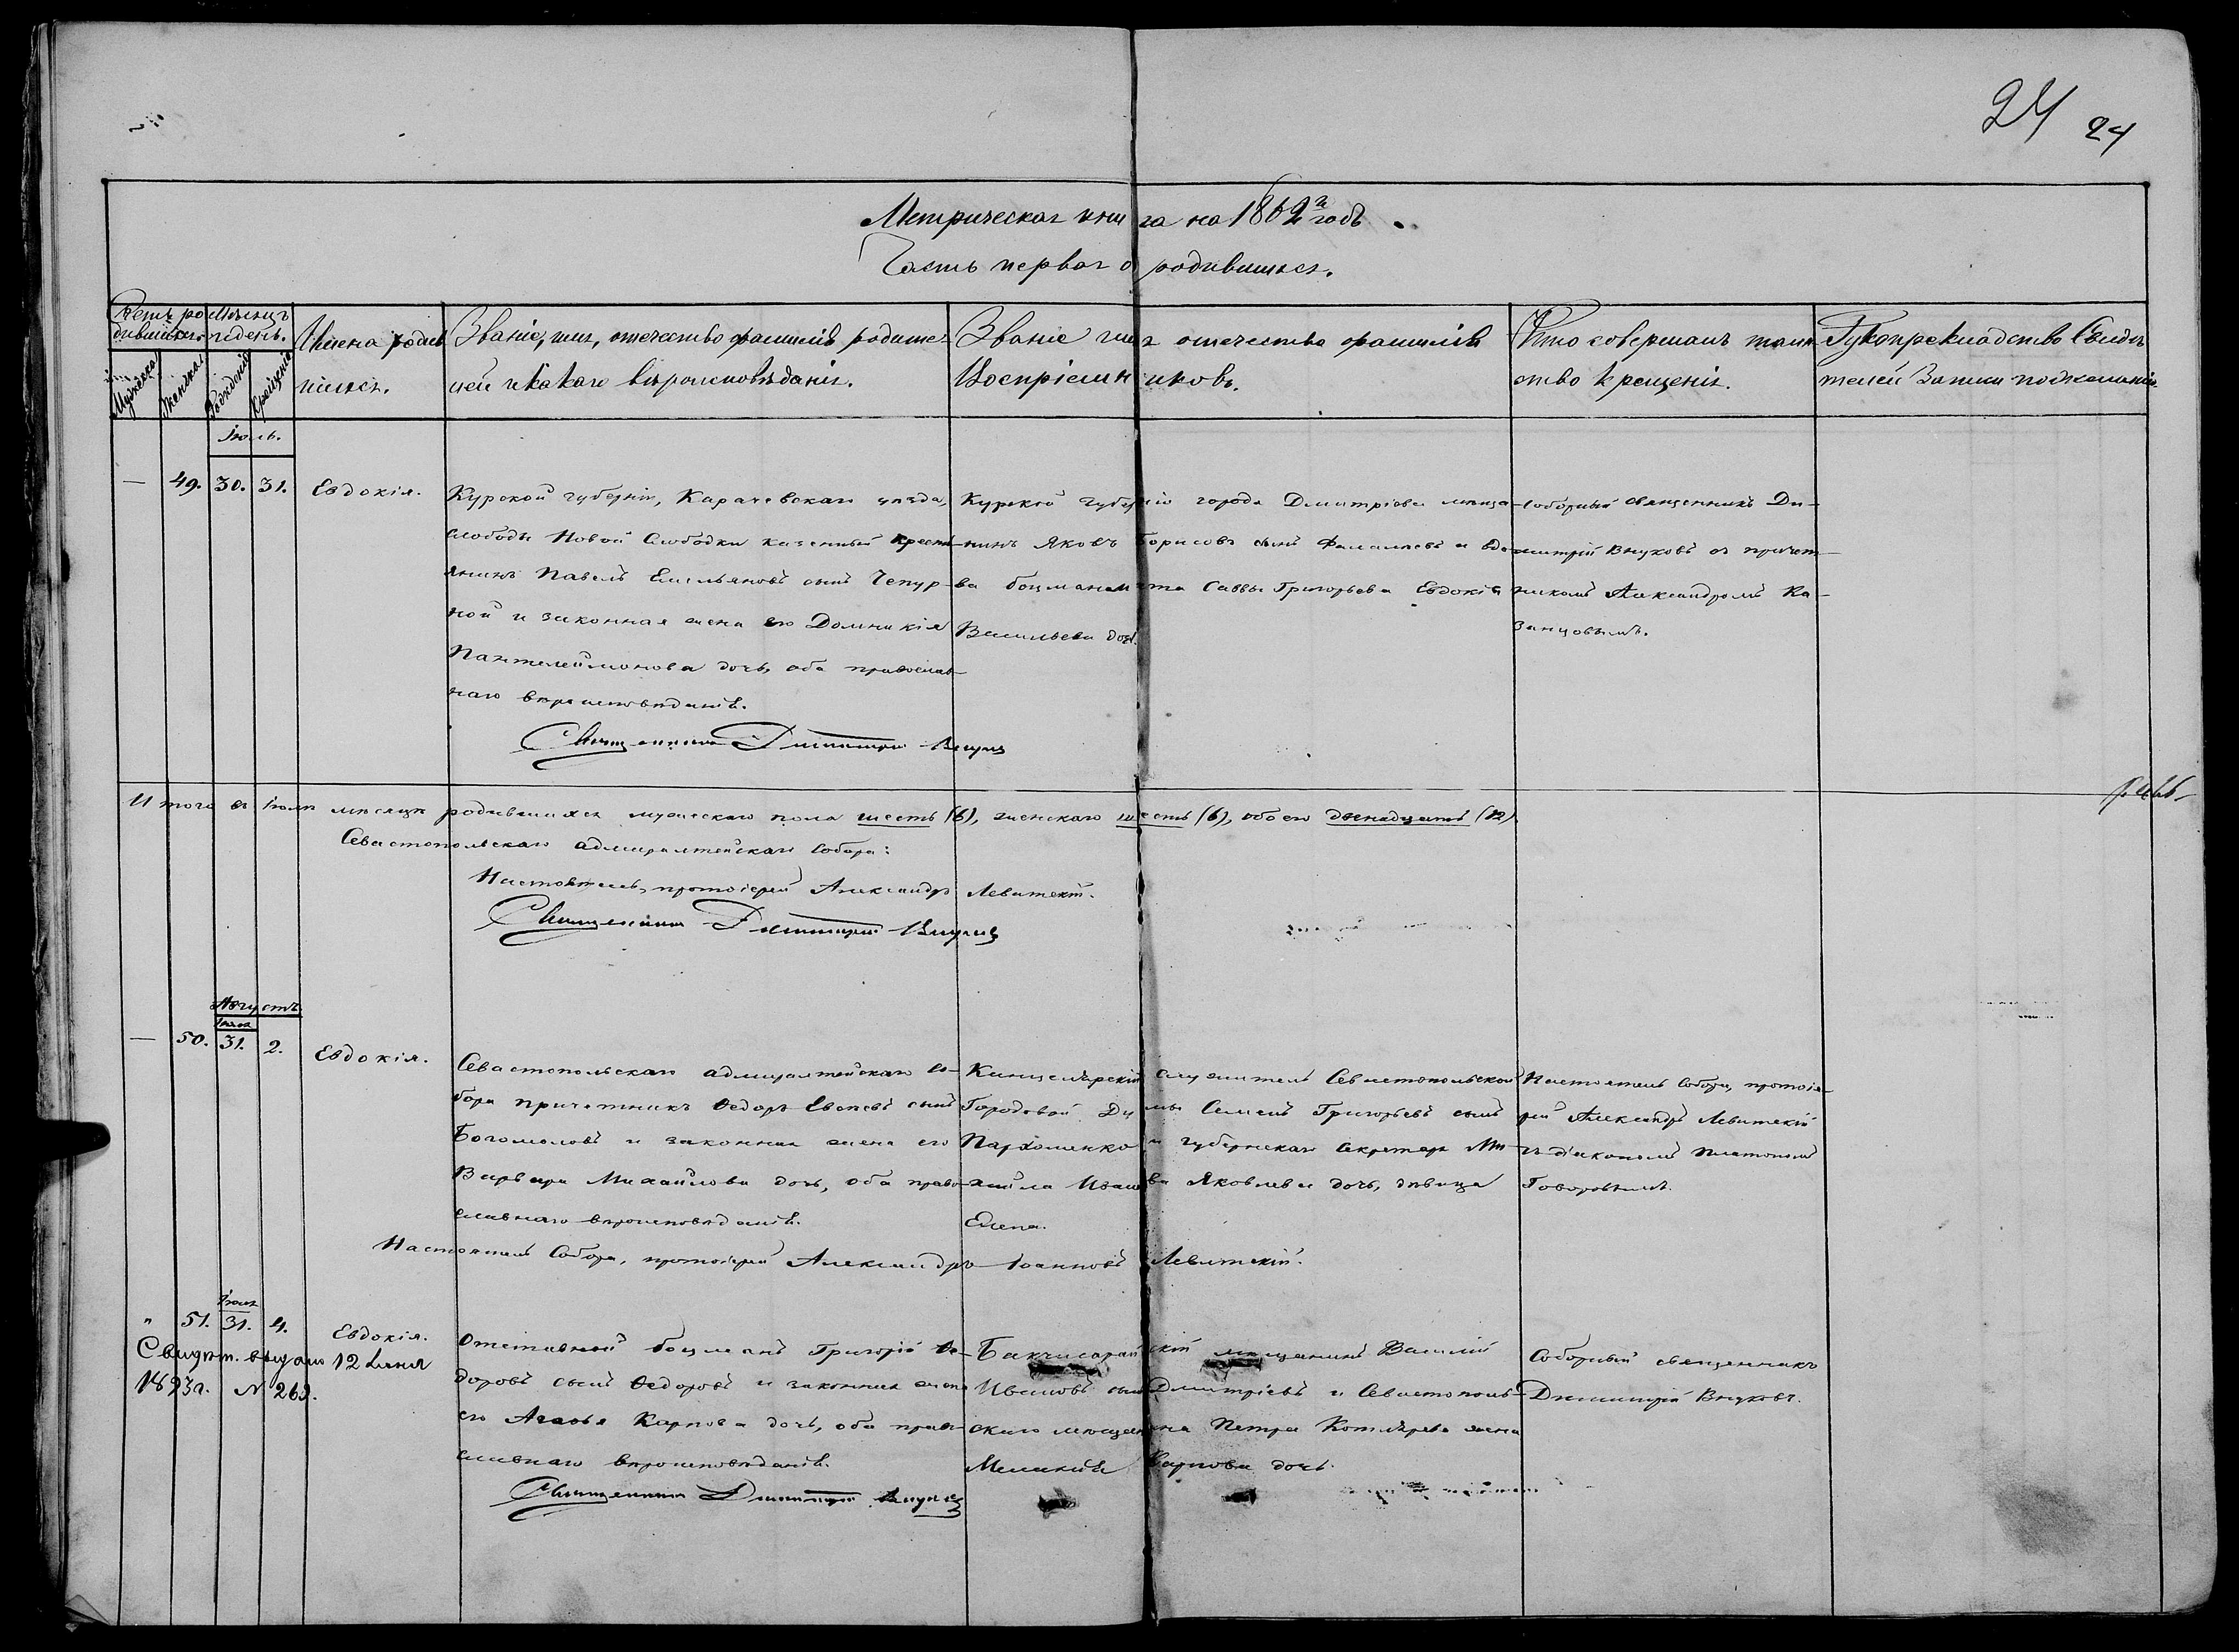 24 24
Метрическая книга на 1862й годъ.
Часть первая о родившихся.
Счетъ родившихся.
Мѣсяцъ и день.
Мужеска.
Женска.
Рожденія
Крещенія
Имена родив
шихся.
Званіе, имя, отечество фамилія родите
лей и какаго вѣроисповѣданія.
Званіе имя отечество фамилія
Воспріемниковъ.
Кто совершалъ таин
ство крещенія.
Рукоприкладство Свидѣ
телей Записи по желанію
Іюль.
— 49. 30. 31. Евдокія.
Курской губерніи, Карачевскаго уѣзда,
слободы Новой Слободки казенный кресть
янинъ Павелъ Емельяновъ сынъ Чепур-
ной и законная жена его Домникія
Пантелеймонова дочь, оба православ-
наго вѣроисповѣданія.
Священникъ Димитрій Внуковъ
Курской губерніи города Дмитріева мѣща-
нинъ Яковъ Борисовъ сынъ и вдо-
ва боцманмата Саввы Григорьева Евдокія
Васильева дочь.
Соборный священникъ Ди-
митрій Внуковъ съ причет-
никомъ Александромъ Ка-
занцовымъ.
Итого въ Іюлѣ мѣсяцѣ родившихся мужескаго пола шесть (6), женскаго шесть (6), обоего двѣнадцать (12)
Севастопольскаго адмиралтейскаго Собора:
Настоятель, протоіерей Александръ Левитскій.
Священникъ Димитрій Внуковъ
Августъ
Іюля
— 50. 31. 2. Евдокія.
Севастопольскаго адмиралтейскаго Со-
бора причетникъ Ѳедоръ сынъ
Богомоловъ и законная жена его
Варвара Михайлова дочь, оба право-
славнаго вѣроисповѣданія.
Канцелярскій служитель Севастопольской
Городовой Думы Семенъ Григорьевъ сынъ
Пархоменко и губернскаго Секретаря Ми-
хаила Яковлева дочь, дѣвица
Елена.
Настоятель Собора, протоіе-
рей Александръ Левитскій
съ діакономъ Платономъ
Говоровымъ.
Настоятель Собора, протоіерей Александръ Іоанновъ Левитскій.
Іюля
" 51. 31. 4. Евдокія.
Свидѣт. выдано 12 Іюня
1893г. N 262.
Отставной боцманъ Григорій Ѳе-
доровъ сынъ Ѳедоровъ и законная жена
его Агаѳья Карпова дочь, оба право-
славнаго вѣроисповѣданія.
Священникъ Димитрій Внуковъ
Бакчисарайскій мѣщанинъ Василій
Ивановъ сынъ Дмитріевъ и Севастополь-
скаго мѣщанина Петра Котлярева жена
Меланія Карпова дочь.
Соборный священникъ
Димитрій Внуковъ.